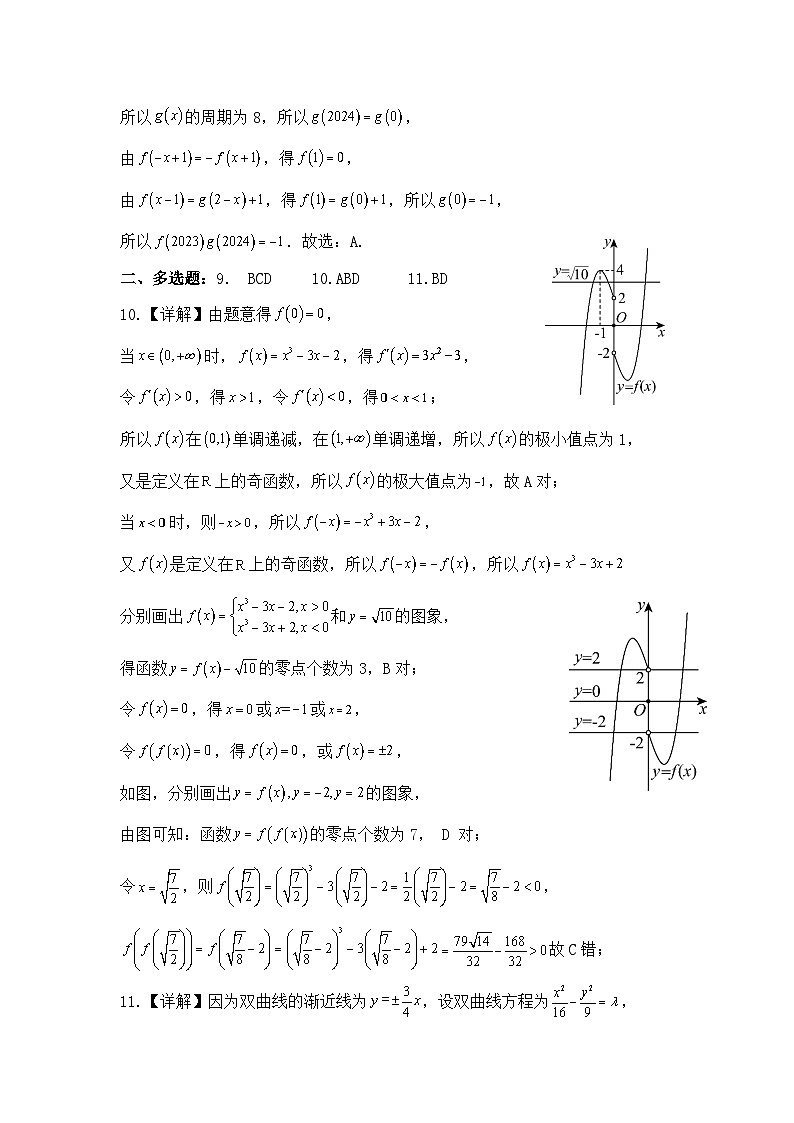 所以g(x)的周期为8,所以g(2024)=g(0),
由f(-x+1)=-f(x+1),得f(1)=0,
由f(x-1)=g(2-x)+1,得f(1)=g(0)+1,所以g(0)=-1,
所以f(2023)g(2024)=-1.故选:A.
二、多选题:9. BCD 10.ABD 11.BD
10.【详解】由题意得f(0)=0,
当x∈(0,+∞)时, f(x)=x³-3x-2,得f′(x)=3x²-3,
令f′(x)>0,得x>1,令f′(x)<0,得0<x<1;
y
y=√10
4
2
O
-1
x
-2
y=f(x)
所以f(x)在(0,1)单调递减,在(1,+∞)单调递增,所以f(x)的极小值点为1,
又是定义在R上的奇函数,所以f(x)的极大值点为-1,故A对;
当x<0时,则-x>0,所以f(-x)=-x³+3x-2,
又f(x)是定义在R上的奇函数,所以f(-x)=-f(x),所以f(x)=x³-3x+2
分别画出f(x)={x³-3x-2,x>0 x³-3x+2,x<0和y=√10的图象,
得函数y=f(x)-√10的零点个数为3,B对;
令f(x)=0,得x=0或x=-1或x=2,
令f(f(x))=0,得f(x)=0,或f(x)=±2,
如图,分别画出y=f(x),y=-2,y=2的图象,
y
y=2
2
y=0
O
x
y=-2
-2
y=f(x)
由图可知:函数y=f(f(x))的零点个数为7, D 对;
令x=√(7/2),则f(√(7/2))=(√(7/2))³-3(√(7/2))-2=1/2(√(7/2))-2=√(7/8)-2<0,
f(f(√(7/2)))=f(√(7/8)-2)=(√(7/8)-2)³-3(√(7/8)-2)+2=79√14/32-168/32>0故C错;
11.【详解】因为双曲线的渐近线为y=±3/4x,设双曲线方程为x²/16-y²/9=λ,